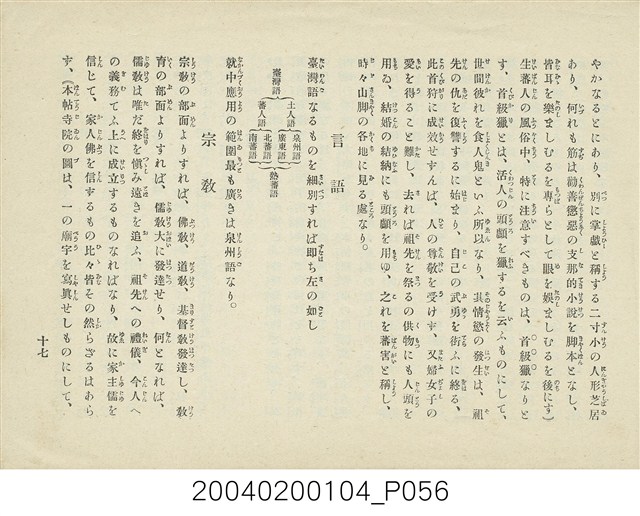 やかなるとにあり、別に掌戯と稱する二寸小の人形芝居
あり、何れも筋は勸善懲惡の支那的小說を脚本となし、
皆耳を樂ましむるを專らとして眼を娛ましむるを後にす)
生蕃人の風俗中、特に注意すべきものは、首級獵なりと
す、首級獵とは、活人の頭顱を獵するを云ふものにして、
世間彼れを食人鬼といふ所以なり、其情慾の發生は、祖
先の仇を復讐するに始まり、自己の武勇を衒ふに終る、
此首狩に成效せずんば、人の尊敬を受けず、又婦女子の
愛を得ること難し、去れば祖先を祭るの供物にも人頭を
用ゐ、結婚の結納にも頭顱を用ゆ、之れを蕃害と稱し、
時々山脚の各地に見る處なり。
言語
臺灣語なるものを細別すれば卽ち左の如し
臺灣語
土人語
泉州語
廣東語
蕃人語
北蕃語
南蕃語
熟蕃語
就中應用の範圍最も廣きは泉州語なり。
宗敎
宗敎の部面よりすれば、佛敎、道敎、基督敎發達し、敎
育の部面よりすれば、儒敎大に發達せり、何となれば、
儒敎は唯だ終を愼み遠きを追ふ、祖先への禮儀、今人へ
の義務てふ上に成立するものなればなり、故に家主儒を
信じて、家人佛を信ずるもの比々皆その然らざるはあら
ず、(本帖寺院の圖は、一の廟宇を寫眞せしものにして、
十七
20040200104_P056